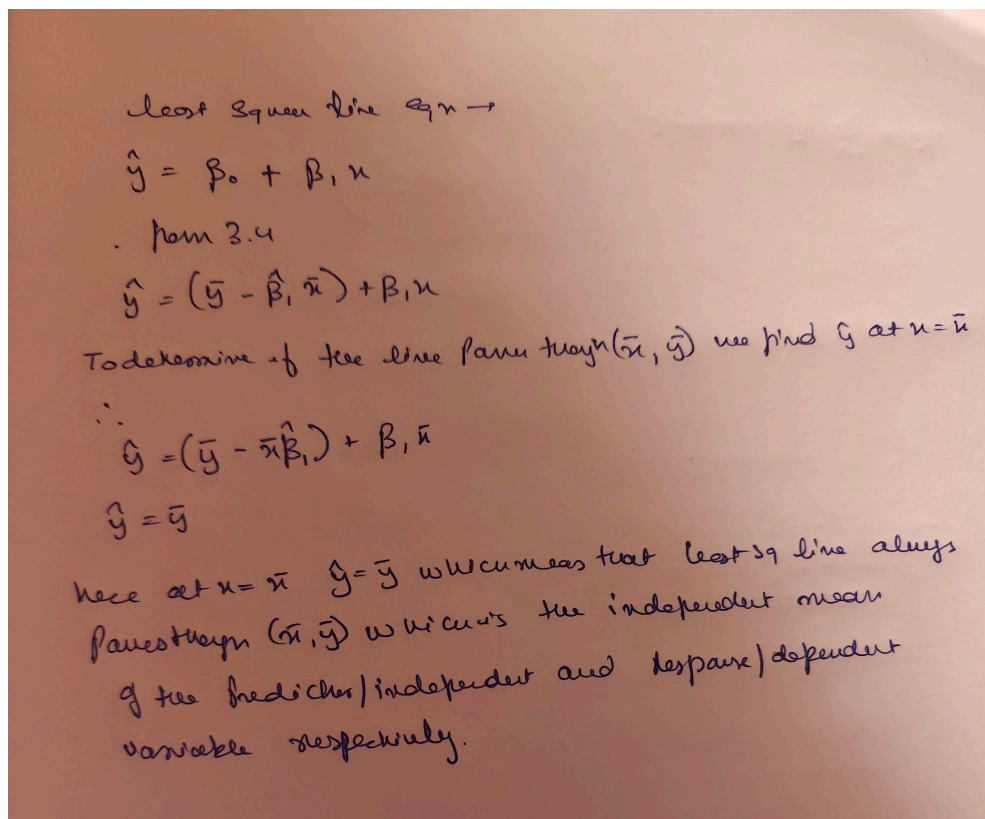 least square line eqn →
ŷ = β₀ + β₁ x
. from 3.4
ŷ = (ȳ - β̂₁ x̄) + β₁x
To determine if the line passes through (x̄, ȳ) we find ŷ at x = x̄
∴
ŷ = (ȳ - x̄β̂₁) + β₁ x̄
ŷ = ȳ
here at x = x̄ ŷ = ȳ which means that least sq line always
passes through (x̄, ȳ) which is the independent mean
of the predictor/independent and response/dependent
variable respectively.